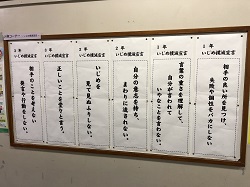 １年
いじめ撲滅宣言
相手の良い所を見つけ、
失敗や個性をバカにしない。
１年
いじめ撲滅宣言
言葉の重さを理解して、
自分が言われて
いやなことを言わない。
２年
いじめ撲滅宣言
自分の意志を持ち、
まわりに流されない。
２年
いじめ撲滅宣言
いじめを
見て見ぬふりしない。
３年
いじめ撲滅宣言
正しいことを堂々と言う。
３年
いじめ撲滅宣言
相手のことを考えない
発言や行動をしない。